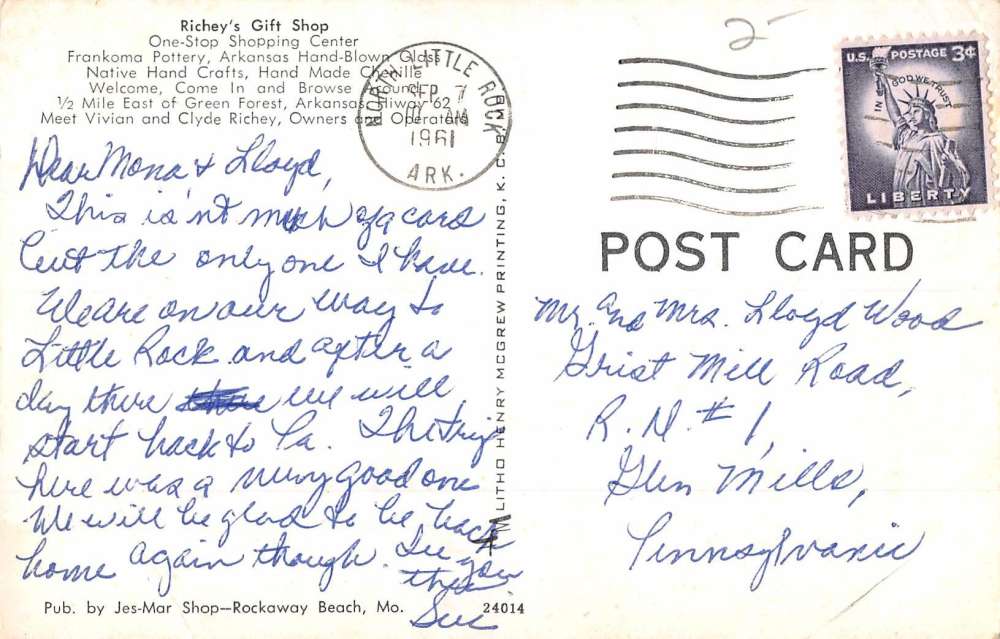 Richey's Gift Shop
One-Stop Shopping Center
Frankoma Pottery, Arkansas Hand-Blown Glass
Native Hand Crafts, Hand Made Chenille
Welcome, Come In and Browse Around
½ Mile East of Green Forest, Arkansas Hiway 62
Meet Vivian and Clyde Richey, Owners and Operators
NORTH LITTLE ROCK
SEP 7
10 AM
1961
ARK.
2
U.S. POSTAGE 3¢
IN GOD WE TRUST
LIBERTY
Dear Mona & Lloyd,
This is'nt much of a card
but the only one I have.
We are on our way to
Little Rock and after a
day there we will
start back to Pa. The trip
here was a very good one
We will be glad to be back
home again though. See you
then.
Sue
LITHO HENRY MCGREW PRINTING, K. C. 8, MO.
POST CARD
Mr. and Mrs. Lloyd Wood
Grist Mill Road,
R. D. #1,
Glen Mills,
Pennsylvania
Pub. by Jes-Mar Shop—Rockaway Beach, Mo.
24014